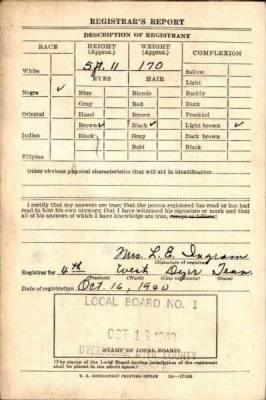 REGISTRAR'S REPORT
DESCRIPTION OF REGISTRANT
RACE HEIGHT (Approx.) WEIGHT (Approx.) COMPLEXION
5 ft. 11 170
White EYES HAIR Sallow
Light
Negro ✓ Blue Blonde Ruddy
Gray Red Dark
Oriental Hazel Brown Freckled
Brown ✓ Black ✓ Light brown ✓
Indian Black Gray Dark brown
Bald Black
Filipino
Other obvious physical characteristics that will aid in identification
I certify that my answers are true; that the person registered has read or has had
read to him his own answers; that I have witnessed his signature or mark and that
all of his answers of which I have knowledge are true, except as follows:
Mrs. L. E. Ingram
(Signature of registrar)
Registrar for 4th West Dyer Tenn.
(Precinct) (Ward) (City or county) (State)
Date of registration Oct. 16, 1940
LOCAL BOARD NO. 1
OCT
DYER COUNTY
(STAMP OF LOCAL BOARD)
(The stamp of the Local Board having jurisdiction of the registrant
shall be placed in the above space.)
U. S. GOVERNMENT PRINTING OFFICE 16—17105